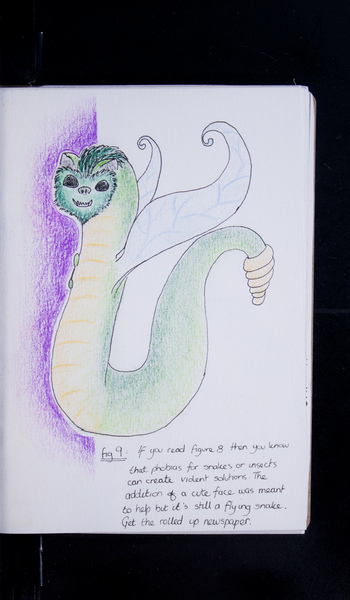 fig 9: If you read figure 8 then you know
that phobias for snakes or insects
can create violent solutions. The
addition of a cute face was meant
to help but it's still a flying snake.
Get the rolled up newspaper.